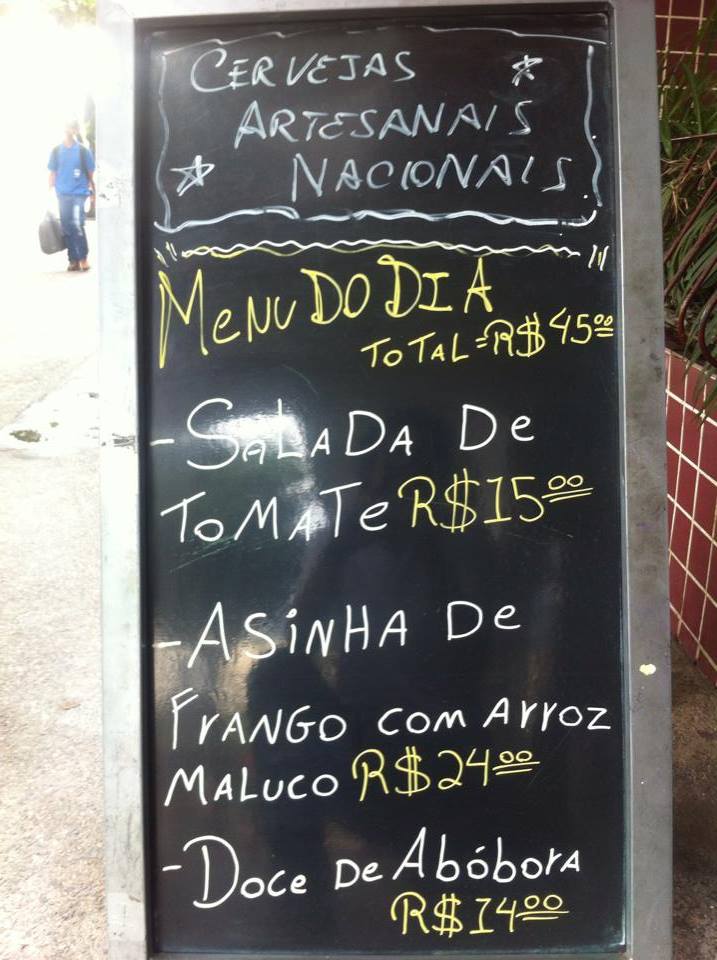 CERVEJAS
ARTESANAIS
NACIONAIS
MENU DO DIA
TOTAL=R$45,00
-SALADA DE
TOMATE R$15,00
-ASiNHA De
FrANGO COM ArrOZ
MALUCO R$24,00
-DOCE DE AbóborA
R$14,00